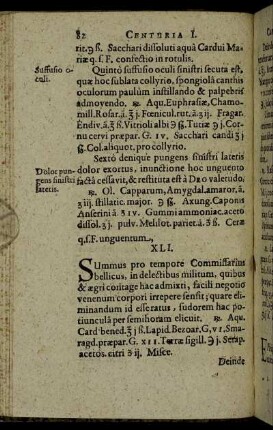 82 CENTURIA I.
rit. ℈ ß. Sacchari dissoluti aquâ Cardui Ma-
riæ q. s. F. confectio in rotulis.
Suffusio o-
culi.
Quintò suffusio oculi sinistri secuta est,
quæ hoc sublata collyrio, spongiolâ canthis
oculorum paulùm instillando & palpebris
admovendo. ℞. Aqu. Euphrasiæ, Chamo-
mill. Rosar. â. ʒ j. Fœnicul. rut. â. ʒ iij. Fragar.
Endiv. â. ʒ ß. Vitrioli albi ℈ ß. Tutiæ ℈ j. Cor-
nu cervi præpar. G. IV. Sacchari candi ʒ j
ß. Col. aliquot, pro collyrio.
Dolor pun-
gens sinistri
lateris.
Sextò denique pungens sinistri lateris
dolor exortus, inunctione hoc unguento
factâ cessavit, & restituta est à DEO valetudo.
℞. Ol. Capparum, Amygdal. amaror. â.
ʒ iij. stillatic. major. ℈ ß. Axung. Caponis
Anserini â. ʒ IV. Gummi ammoniac. aceto
dissol. ʒ j. pulv. Melilot. pariet. â. ℈ ß. Ceræ
q. s. F. unguentum.
XLI.
SUmmus pro tempore Commissarius
bellicus, in delectibus militum, quibus
& ægri coritage hac admixti, facili negotio
venenum corpori irrepere sensit; quare eli-
minandum id efferatus, sudorem hac po-
tiunculâ per semihoram elicuit. ℞. Aqu.
Card. bened. ʒ j ß. Lapid. Bezoar. G, VI. Sma-
ragd. præpar. G. XII. Terræ sigill. ℈ j. Serap.
acetos. citri ʒ ij. Misce.
Deinde